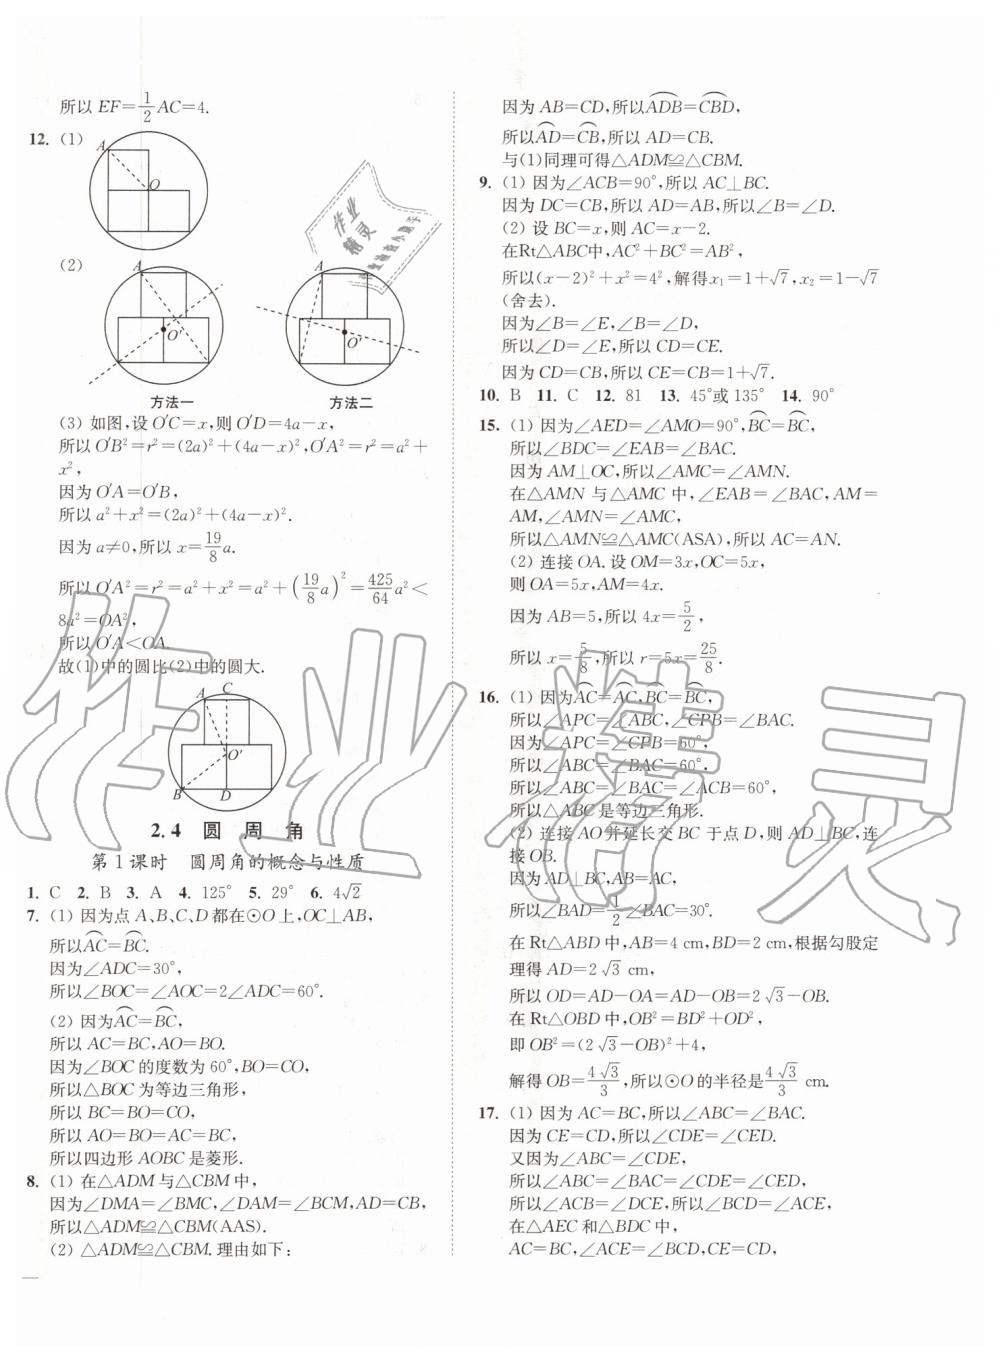 所以 EF=1/2 AC=4.
12. (1)
A
O
(2)
A
O′
A
O′
方法一 方法二
(3) 如图,设 O′C=x,则 O′D=4a−x,
所以 O′B²=r²=(2a)²+(4a−x)²,O′A²=r²=a²+
x²,
因为 O′A=O′B,
所以 a²+x²=(2a)²+(4a−x)².
因为 a≠0,所以 x=19/8 a.
所以 O′A²=r²=a²+x²=a²+(19/8 a)²=425/64 a²<
8a²=OA²,
所以 O′A<OA.
故(1)中的圆比(2)中的圆大.
A C
O′
B D
2.4 圆 周 角
第 1 课时 圆周角的概念与性质
1. C 2. B 3. A 4. 125° 5. 29° 6. 4√2
7. (1) 因为点 A、B、C、D 都在⊙O 上,OC⊥AB,
所以A͡C=B͡C.
因为∠ADC=30°,
所以∠BOC=∠AOC=2∠ADC=60°.
(2) 因为A͡C=B͡C,
所以 AC=BC,AO=BO.
因为∠BOC 的度数为 60°,BO=CO,
所以△BOC 为等边三角形,
所以 BC=BO=CO,
所以 AO=BO=AC=BC,
所以四边形 AOBC 是菱形.
8. (1) 在△ADM 与△CBM 中,
因为∠DMA=∠BMC,∠DAM=∠BCM,AD=CB,
所以△ADM≌△CBM(AAS).
(2) △ADM≌△CBM.理由如下:
因为 AB=CD,所以A͡DB=C͡BD,
所以A͡D=C͡B,所以 AD=CB.
与(1)同理可得△ADM≌△CBM.
9. (1) 因为∠ACB=90°,所以 AC⊥BC.
因为 DC=CB,所以 AD=AB,所以∠B=∠D.
(2) 设 BC=x,则 AC=x−2.
在Rt△ABC中,AC²+BC²=AB²,
所以(x−2)²+x²=4²,解得x₁=1+√7,x₂=1−√7
(舍去).
因为∠B=∠E,∠B=∠D,
所以∠D=∠E,所以 CD=CE.
因为 CD=CB,所以 CE=CB=1+√7.
10. B 11. C 12. 81 13. 45°或 135° 14. 90°
15. (1) 因为∠AED=∠AMO=90°,B͡C=B͡C,
所以∠BDC=∠EAB=∠BAC.
因为 AM⊥OC,所以∠AMC=∠AMN.
在△AMN 与△AMC 中,∠EAB=∠BAC,AM=
AM,∠AMN=∠AMC,
所以△AMN≌△AMC(ASA),所以 AC=AN.
(2) 连接 OA.设 OM=3x,OC=5x,
则 OA=5x,AM=4x.
因为 AB=5,所以 4x=5/2,
所以 x=5/8,所以 r=5x=25/8.
16. (1) 因为A͡C=A͡C,B͡C=B͡C,
所以∠APC=∠ABC,∠CPB=∠BAC.
因为∠APC=∠CPB=60°,
所以∠ABC=∠BAC=60°,
所以∠ABC=∠BAC=∠ACB=60°,
所以△ABC 是等边三角形.
(2) 连接 AO并延长交 BC 于点 D,则 AD⊥BC,连
接 OB.
因为 AD⊥BC,AB=AC,
所以∠BAD=1/2∠BAC=30°.
在 Rt△ABD 中,AB=4 cm,BD=2 cm,根据勾股定
理得 AD=2√3 cm,
所以 OD=AD−OA=AD−OB=2√3−OB.
在 Rt△OBD 中,OB²=BD²+OD²,
即 OB²=(2√3−OB)²+4,
解得 OB=4√3/3,所以⊙O 的半径是4√3/3 cm.
17. (1) 因为 AC=BC,所以∠ABC=∠BAC.
因为 CE=CD,所以∠CDE=∠CED.
又因为∠ABC=∠CDE,
所以∠ABC=∠BAC=∠CDE=∠CED,
所以∠ACB=∠DCE,所以∠BCD=∠ACE,
在△AEC 和△BDC 中,
AC=BC,∠ACE=∠BCD,CE=CD,
作业精灵
作业
精灵